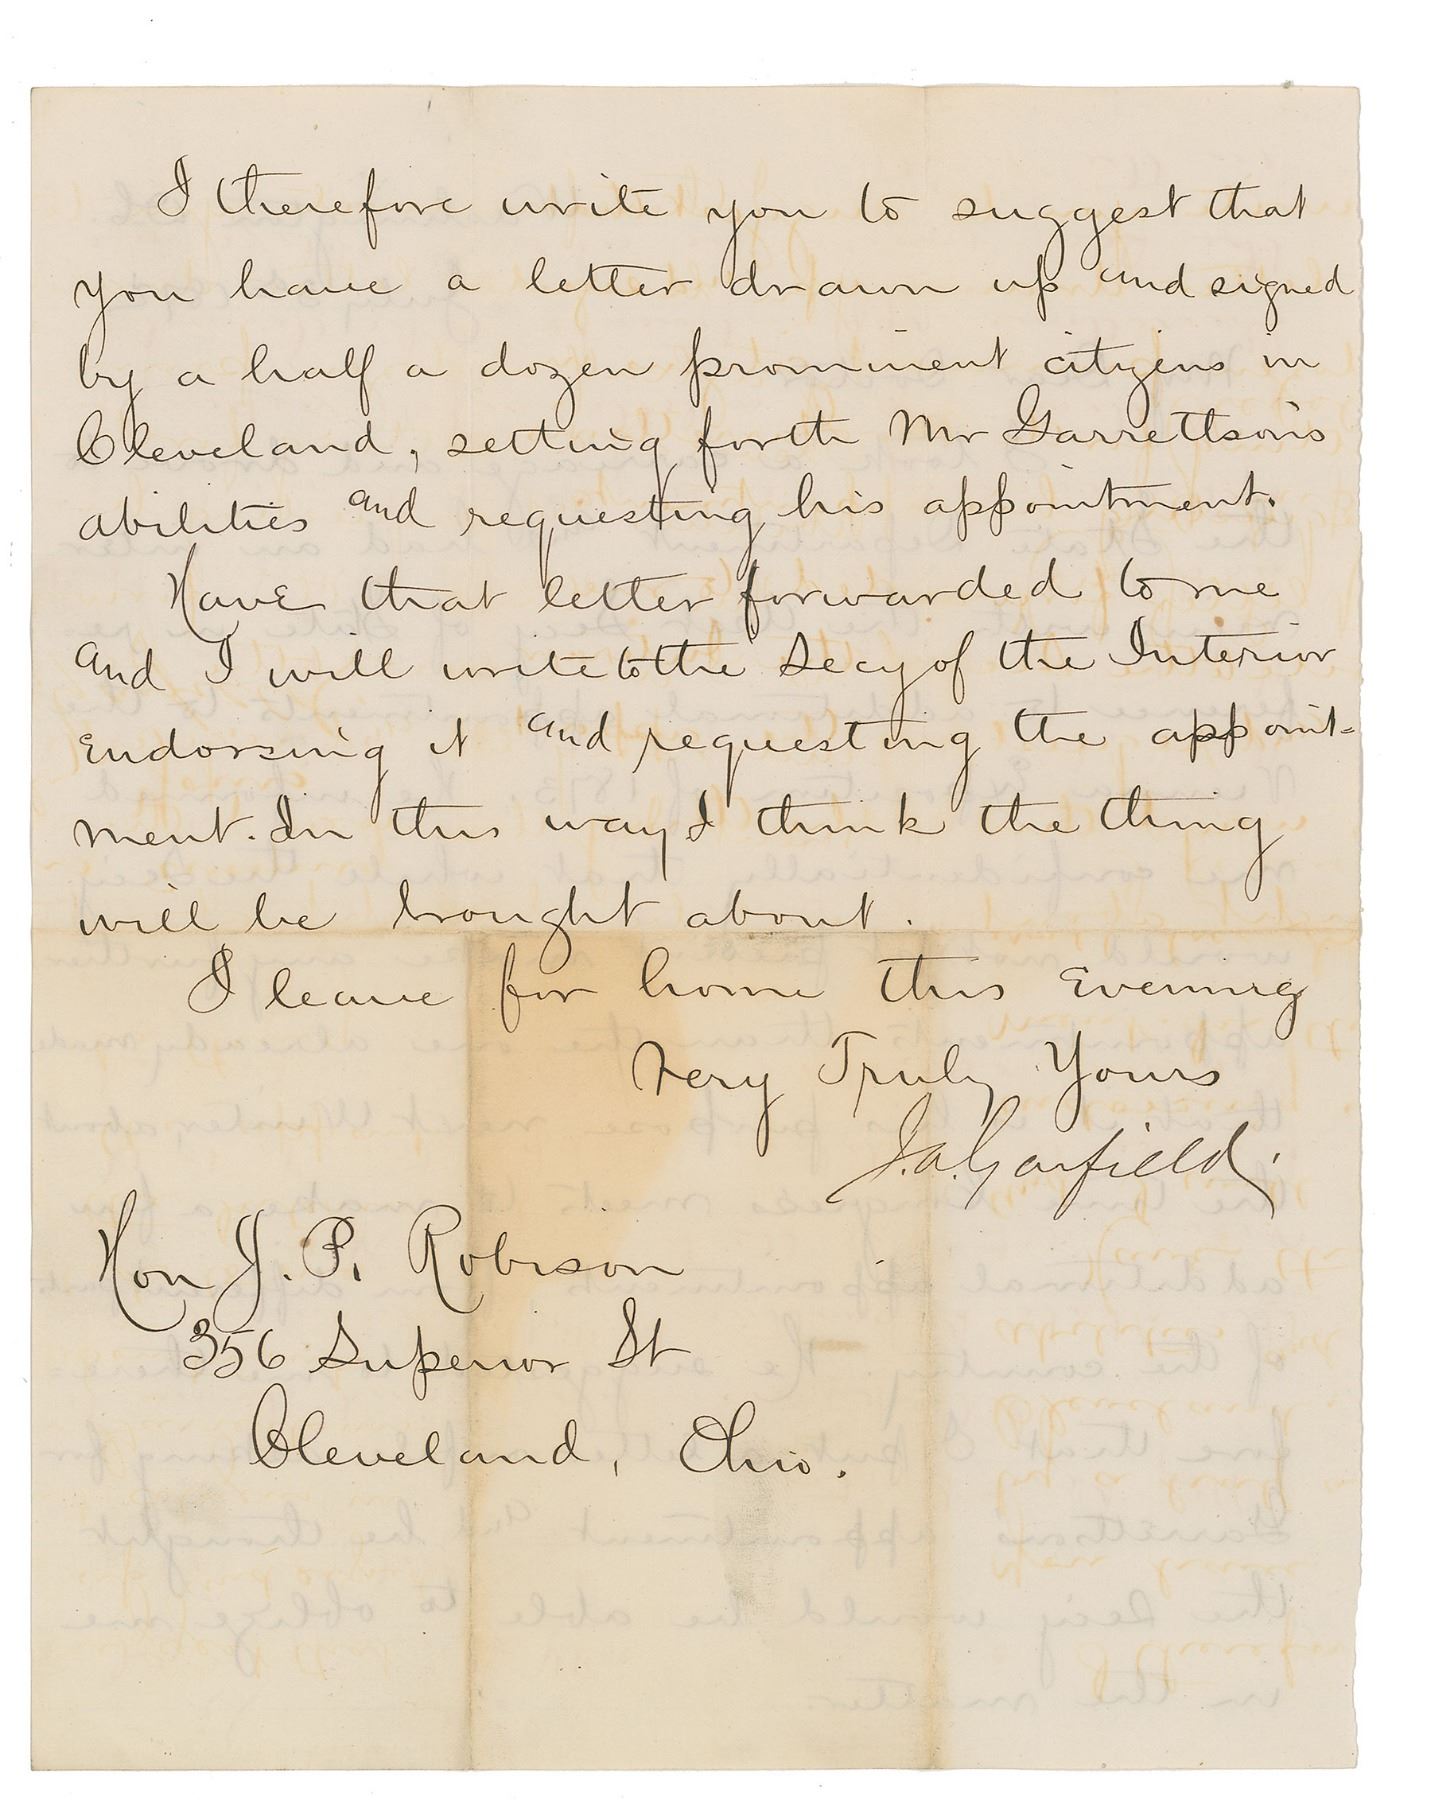 I therefore write you to suggest that
you have a letter drawn up and signed
by a half a dozen prominent citizens in
Cleveland, setting forth Mr Garrettson's
abilities and requesting his appointment.
Have that letter forwarded to me
and I will write to the Secy of the Interior
Endorsing it and requesting the appoint-
ment. In this way I think the thing
will be brought about.
I leave for home this Evening
Very Truly Yours
J. A. Garfield.
Hon J. P. Robison
356 Superior St
Cleveland, Ohio.